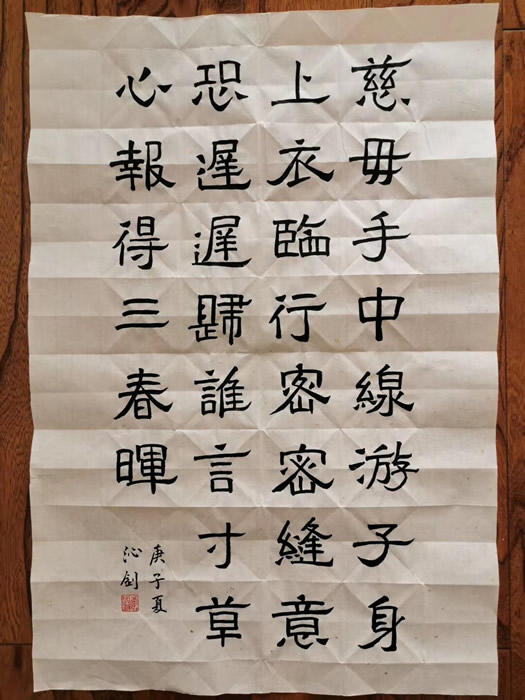 慈母手中線游子身
上衣臨行密密縫意
恐遲遲歸誰言寸草
心報得三春暉
庚子夏
沁釗